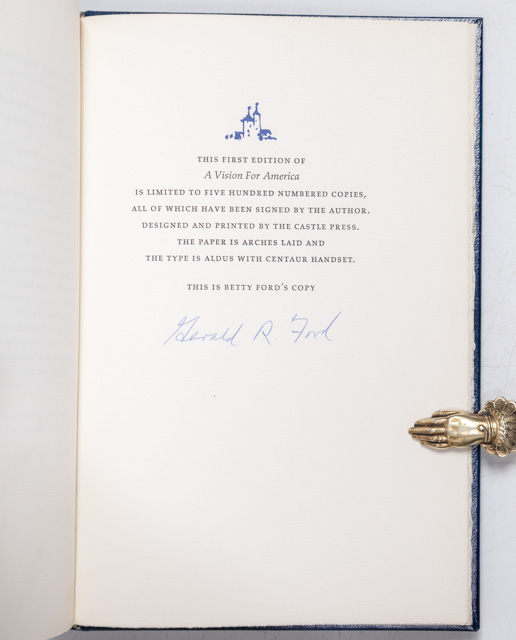 THIS FIRST EDITION OF
A Vision For America
IS LIMITED TO FIVE HUNDRED NUMBERED COPIES,
ALL OF WHICH HAVE BEEN SIGNED BY THE AUTHOR.
DESIGNED AND PRINTED BY THE CASTLE PRESS.
THE PAPER IS ARCHES LAID AND
THE TYPE IS ALDUS WITH CENTAUR HANDSET.
THIS IS BETTY FORD'S COPY
Gerald R. Ford